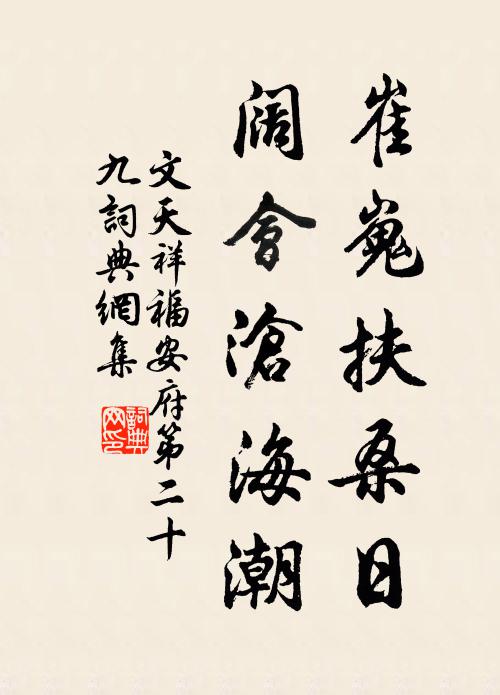 崔嵬扶桑日
阔會滄海潮
文天祥福安府第二十
九詞典網集
詞典網印